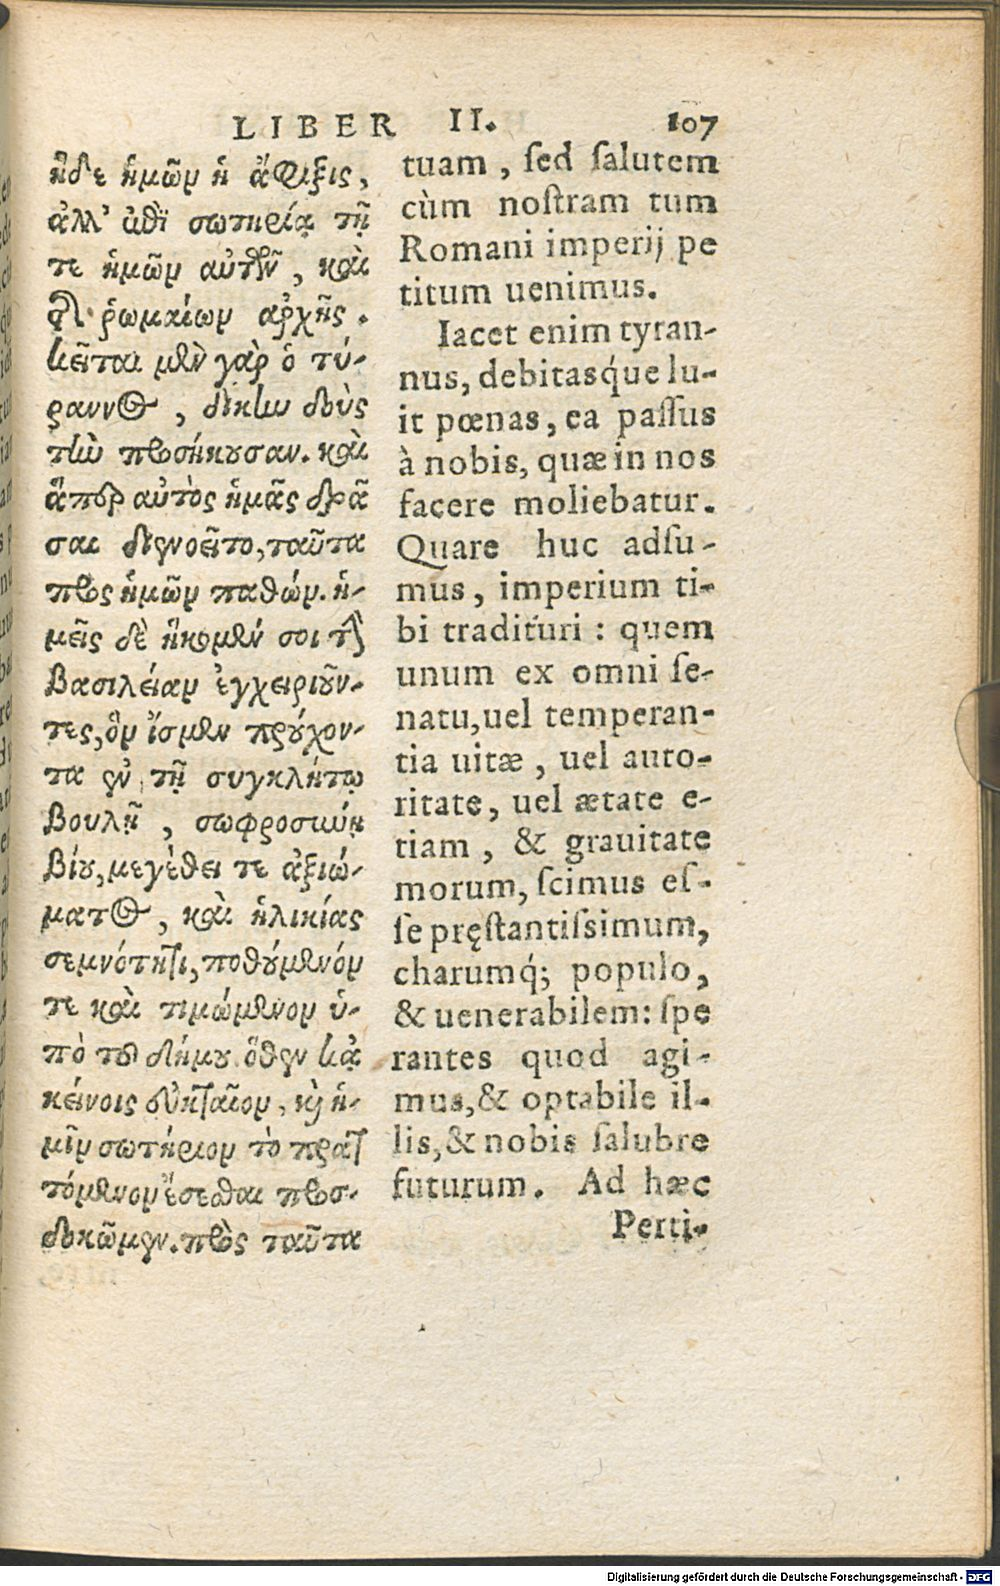 LIBER II. 107
ἥδε ἡμῶν ἡ ἄφιξις,
ἀλλ' ἐπὶ σωτηρίᾳ τῇ
τε ἡμῶν αὐτῶν, καὶ
τῆς ῥωμαίων ἀρχῆς.
κεῖται μὲν γὰρ ὁ τύ-
ραννος, δίκην δοὺς
τὴν προσήκουσαν. καὶ
ἅπερ αὐτὸς ἡμᾶς δρᾶ
σαι διενοεῖτο, ταῦτα
πρὸς ἡμῶν παθών. ἡ-
μεῖς δὲ ἥκομέν σοι τὴν
βασιλείαν ἐγχειριοῦν-
τες, ὃν ἴσμεν προύχον-
τα ἐν τῇ συγκλήτῳ
βουλῇ, σωφροσύνῃ
βίου, μεγέθει τε ἀξιώ-
ματος, καὶ ἡλικίας
σεμνότητι, ποθούμενόν
τε καὶ τιμώμενον ὑ-
πὸ τοῦ δήμου. ὅθεν κἀ
κείνοις εὐκταῖον, καὶ ἡ-
μῖν σωτήριον τὸ πρατ
τόμενον ἔσεσθαι προσ-
δοκῶμεν. πρὸς ταῦτα
tuam, sed salutem
cùm nostram tum
Romani imperij pe
titum uenimus.
Iacet enim tyran-
nus, debitasq́ue lu-
it pœnas, ea passus
à nobis, quæ in nos
facere moliebatur.
Quare huc adsu-
mus, imperium ti-
bi tradituri: quem
unum ex omni se-
natu, uel temperan-
tia uitæ, uel auto-
ritate, uel ætate e-
tiam, & grauitate
morum, scimus es-
se pręstantissimum,
charumq́; populo,
& uenerabilem: spe
rantes quod agi-
mus, & optabile il-
lis, & nobis salubre
futurum. Ad hæc
Perti-
Digitalisierung gefördert durch die Deutsche Forschungsgemeinschaft - DFG